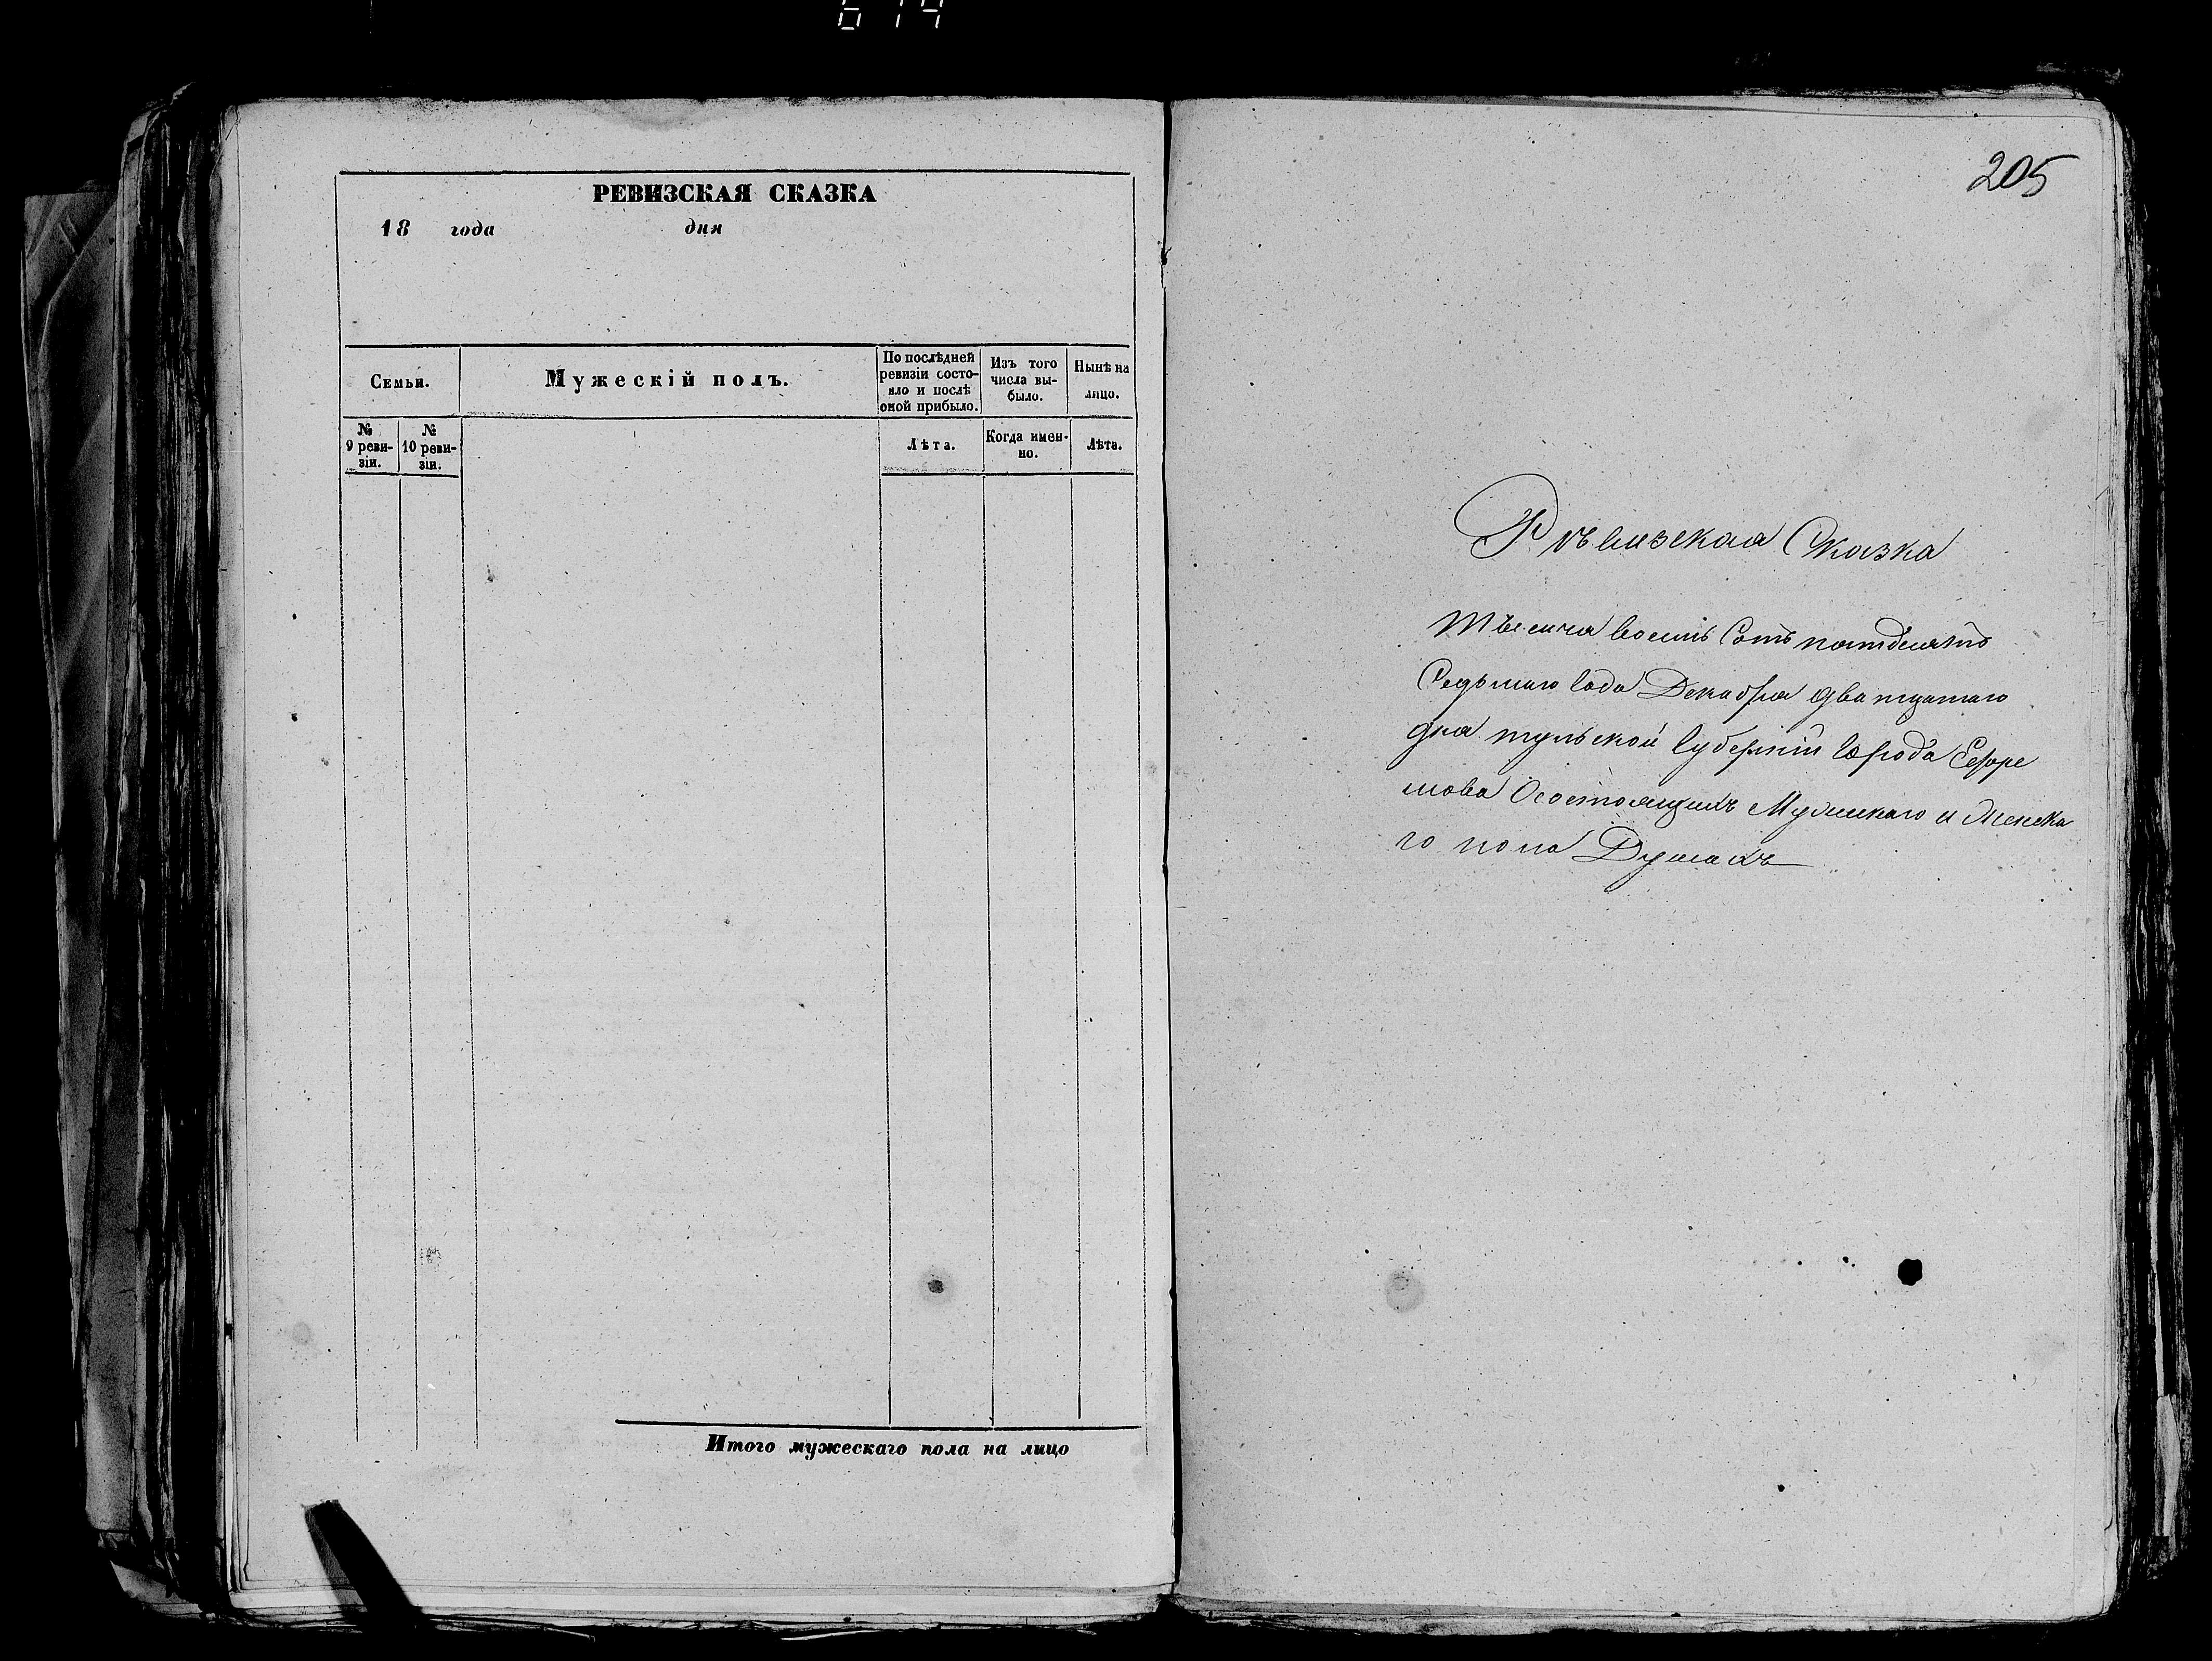 614
РЕВИЗСКАЯ СКАЗКА
18 года дня
Семьи.
Мужескій полъ.
По послѣдней
ревизіи состо-
яло и послѣ
оной прибыло.
Изъ того
числа вы-
было.
Нынѣ на
лицо.
№
9 реви-
зіи.
№
10 реви-
зіи.
Лѣта.
Когда имен-
но.
Лѣта.
Итого мужескаго пола на лицо
205
Ревизская Сказка
Тысича восемь Сотъ патдесятъ
Седьмаго года Декабря дватцатаго
дня тульской губерніи города Ефре
мова Осостоящихъ Мужскаго и Женска
го пола Душахъ